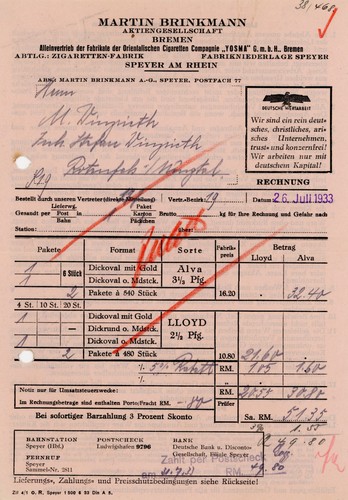 38,468
MARTIN BRINKMANN
AKTIENGESELLSCHAFT
BREMEN
Alleinvertrieb der Fabrikate der Orientalischen Cigaretten Compagnie „YOSMA" G. m. b. H., Bremen
ABTLG.: ZIGARETTEN-FABRIK FABRIKNIEDERLAGE SPEYER
SPEYER AM RHEIN
ABS.: MARTIN BRINKMANN A.-G., SPEYER, POSTFACH 77
DEUTSCHE WERTARBEIT
Wir sind ein rein deut-
sches, christliches, ari-
sches Unternehmen,
trust- und konzernfrei!
Wir arbeiten nur mit
deutschem Kapital!
Herrn
M.
RECHNUNG
Bestellt durch unseren Vertreter (direkte Mitteilung) Vertr.-Bezirk 19 Datum: 26. Juli 1933
Gesandt per Lieferwg. Post Bahn in Paket Karton Päckchen Brutto kg für Ihre Rechnung und Gefahr nach
Station: über
Pakete Format Sorte Fabrik-preis Betrag
Lloyd Alva
1 6 Stück Dickoval mit Gold Alva
1 Dickoval o. Mdstck. 3⅓ Pfg.
2 Pakete à 540 Stück 16.20 32.40
4 St. 10 St. 20 St.
1 Dickoval mit Gold LLOYD
Dickrund o. Mdstck. 2½ Pfg.
1 Dickoval o. Mdstck.
2 Pakete à 480 Stück 10.80 21.60
5% Rabatt RM. 1.05 1.60
Notiz nur für Umsatzsteuerwerke: RM. 20.55 30.80
Im Rechnungsbetrag sind enthalten Porto/Fracht RM. -.80 Prüfer
Bei sofortiger Barzahlung 3 Prozent Skonto Sa. RM. 51.35
1.55
49.80
BAHNSTATION
Speyer (Hbf.)
FERNRUF
Speyer
Sammel-Nr. 2811
POSTSCHECK
Ludwigshafen 9796
BANK
Deutsche Bank u. Diskonto-
Gesellschaft, Filiale Speyer
Zahlt per Postscheck
am RM. 49.80
Lieferungs-, Zahlungs- und Preisvorschriften siehe Rückseite!